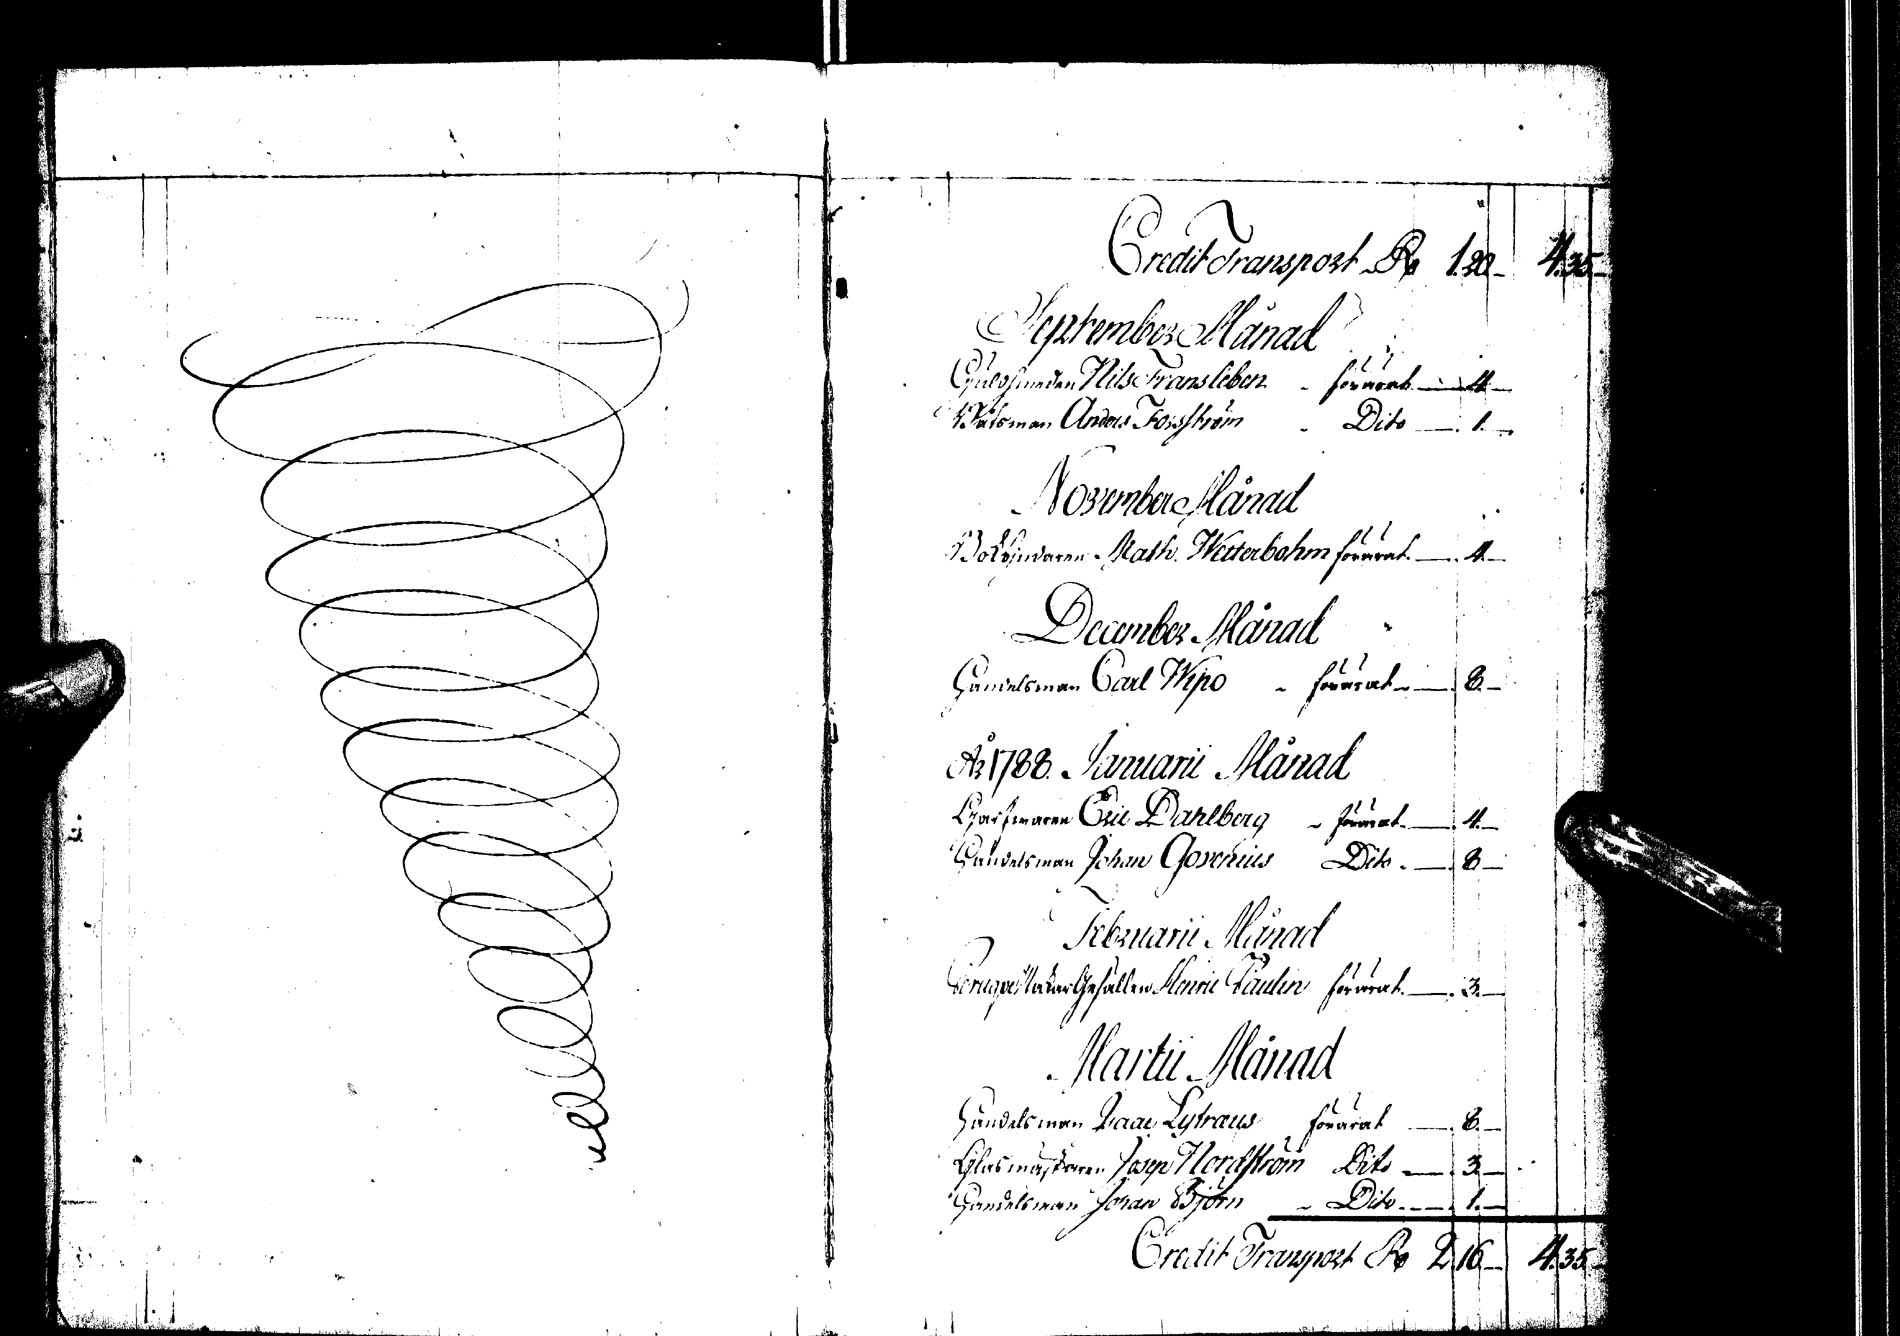 Credit Transport Rd 1.20.— 4.35.—
September Månad
Guldsmeden Nils Fransleben — förärat — 4.—
Båtsman Anders Forsström — Dito — 1.—
November Månad
Math. Wetterbohm förärat — 4.—
December Månad
Handelsman Carl Wipo — förärat — 8.—
År 1788. Januarii Månad
Garfvaren Eric Dahlberg — förärat — 4.—
Handelsman Johan Dito — 8.—
Februarii Månad
Gesällen Henric Paulin förärat — 3.—
Martii Månad
Handelsman Isaac förärat — 8.—
Glasmästaren Josep Nordström Dito — 3.—
Handelsman Johan Björn — Dito — 1.—
Credit Transport Rd 2.16.— 4.35.—